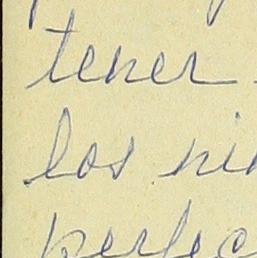 tener
los ni
perfec